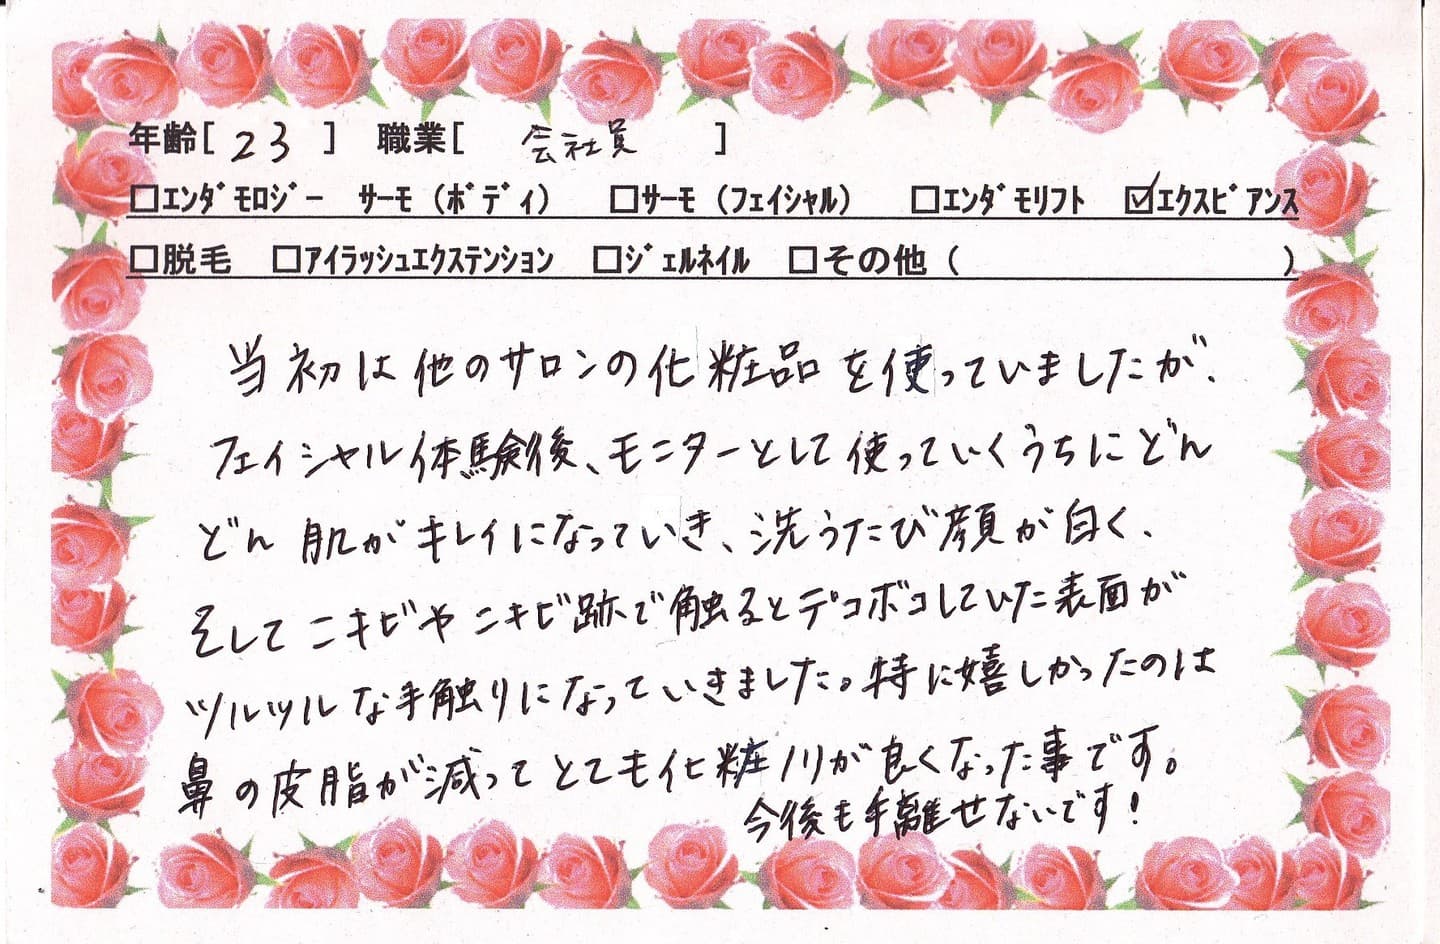 年齢[ 23 ] 職業[ 会社員 ]
□エンダモロジー サーモ（ボディ） □サーモ（フェイシャル） □エンダモリフト ☑エクスビアンス
□脱毛 □アイラッシュエクステンション □ジェルネイル □その他（ ）
当初は他のサロンの化粧品を使っていましたが、
フェイシャル体験後、モニターとして使っていくうちにどん
どん肌がキレイになっていき、洗うたび顔が白く、
そしてニキビやニキビ跡で触るとデコボコしていた表面が
ツルツルな手触りになっていきました。特に嬉しかったのは
鼻の皮脂が減ってとても化粧ノリが良くなった事です。
今後も手離せないです！